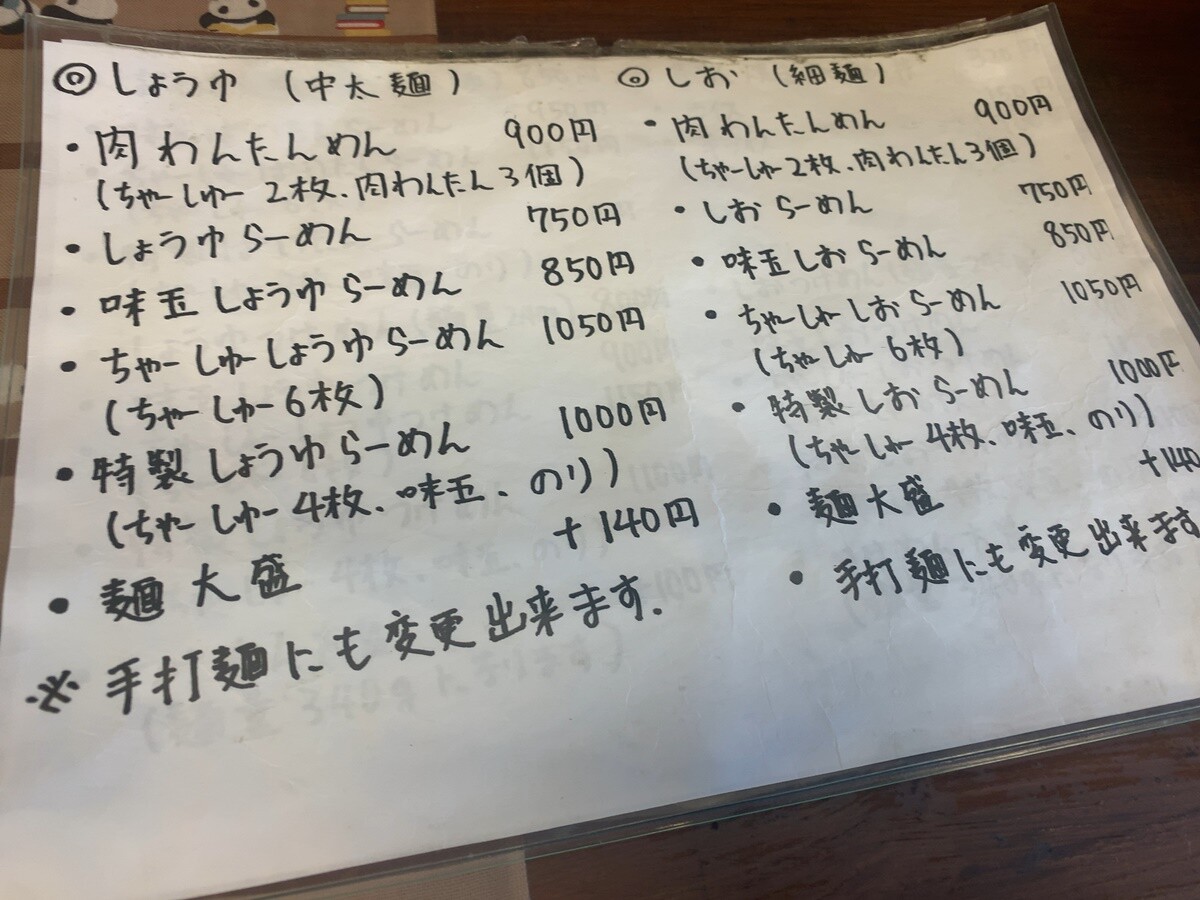 ◎しょうゆ (中太麺)
・肉わんたんめん 900円
(ちゃーしゅー2枚、肉わんたん3個)
・しょうゆらーめん 750円
・味玉しょうゆらーめん 850円
・ちゃーしゅーしょうゆらーめん 1050円
(ちゃーしゅー6枚)
・特製しょうゆらーめん 1000円
(ちゃーしゅー4枚、味玉、のり)
・麺大盛 +140円
※手打麺にも変更出来ます.
◎しお (細麺)
・肉わんたんめん 900円
(ちゃーしゅー2枚、肉わんたん3個)
・しおらーめん 750円
・味玉しおらーめん 850円
・ちゃーしゅーしおらーめん 1050円
(ちゃーしゅー6枚)
・特製しおらーめん 1000円
(ちゃーしゅー4枚、味玉、のり)
・麺大盛 +140
・手打麺にも変更出来ます